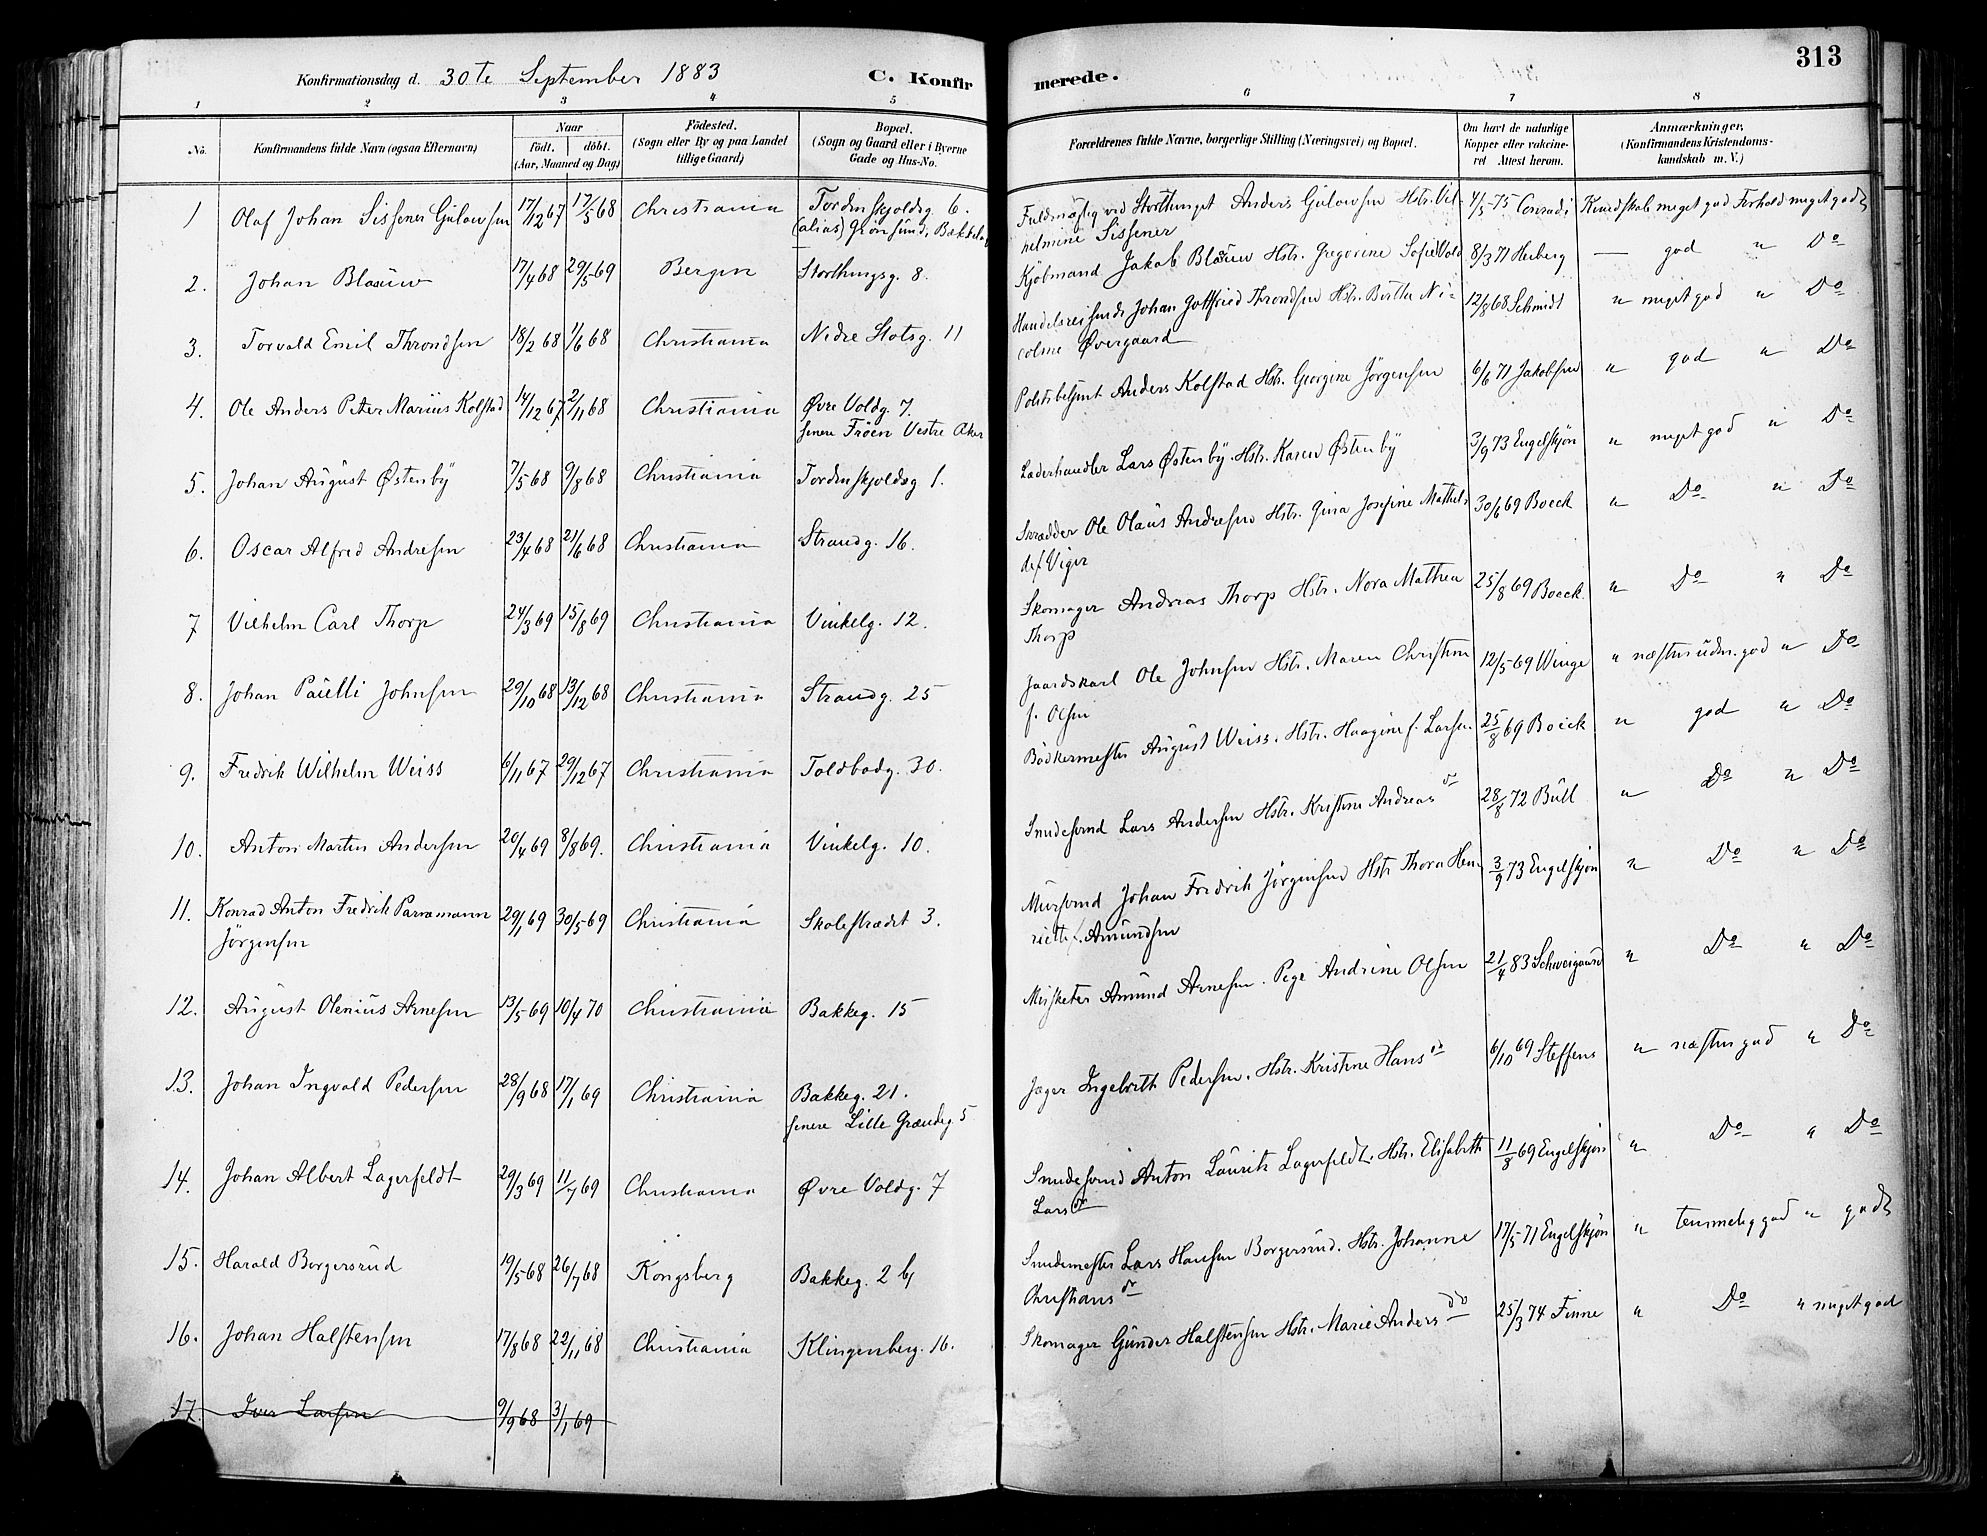 313
Konfirmationsdag d. 30te September 1883 C. Konfirmerede.
1 2 3 4 5 6 7 8
No. Konfirmandens fulde Navn (ogsaa Efternavn) Naar födt. döbt. (Aar, Maaned og Dag) Födested. (Sogn eller By og paa Landet tillige Gaard) Bopæl. (Sogn og Gaard eller i Byerne Gade og Hus-No. Forældrenes fulde Navne, borgerlige Stilling (Næringsvei) og Bopæl. Om havt de naturlige Kopper eller vaccineret Attest herom. Anmærkninger. (Konfirmandens Kristendomskundskab m. V.)
1 Olaf Johan Sissener Gulowsen 17/12 67 17/5 68 Christiania Tordenskjoldsg 6. (alias) Grönsund, Bækkelag Fuldmægtig ved Storthinget Anders Gulowsen Hstr. Vilhelmine Sissener 4/5 75 Conradi Kundskab meget god Forhold meget godt
2. Johan Blaauw 17/4 68 29/5 69 Bergen Storthingsg. 8. Kjöbmand Jakob Blaauw Hstr. Gregorine Sofie Vold 8/3 71 Heiberg — god " Do
3. Torvald Emil Throndsen 18/2 68 1/6 68 Christiania Nedre Slotsg. 11 Handelsreisende Johan Gottfried Throndsen Hstr. Berthe Nicoline Øvergaard 12/8 68 Schmidt " meget god " Do
4. Ole Anders Peter Marius Kolstad 14/12 67 2/11 68 Christiania Øvre Voldg. 7. senere Fröen Vestre Aker Politibetjent Anders Kolstad Hstr. Georgine Jörgensen 6/6 71 Jakobsen " god " Do
5. Johan August Østenby 7/5 68 9/8 68 Christiania Tordenskjoldsg 1. Læderhandler Lars Østenby. Hstr. Karen Østenby 3/9 73 Engelskjön " meget god " Do
6. Oscar Alfred Andresen 23/4 68 21/6 68 Christiania Strandg. 16. Skrædder Ole Olaus Andresen Hstr. Gina Josefine Mathilde f. Viger 30/6 69 Boeck " Do " Do
7 Vilhelm Carl Thorp 24/3 69 15/8 69 Christiania Vinkelg. 12. Skomager Andreas Thorp Hstr. Nora Mathea Thorp 25/8 69 Boeck. " Do " Do
8. Johan Pauelli Johnsen 29/10 68 13/12 68 Christiania Strandg. 25 Gaardskarl Ole Johnsen Hstr. Maren Christine f. Olsen 12/5 69 Winge " næsten udm. god " Do
9. Fredrik Wilhelm Weiss 6/11 67 29/12 67 Christiania Toldbodg. 30. Bödkermester August Weiss. Hstr. Haagine f. Larsen. 25/8 69 Boeck " god " Do
10. Anton Martin Andersen 20/4 69 8/8 69. Christiania Vinkelg. 10. Snedkersvend Lars Andersen Hstr. Kristine Andreas dr 28/8 72 Bull " Do " Do
11. Konrad Anton Fredrik Parramann Jörgensen 29/1 69 30/5 69 Christiania Skolestrædet 3. Mursvend Johan Fredrik Jörgensen Hstr Thora Henriette f. Amundsen 3/9 73 Engelskjön " Do " Do
12. August Olenius Arnesen 13/5 69 10/4 70 Christiania Bakkeg. 15 Musketer Amund Arnesen. Pige Andrine Olsen 21/4 83 Schweigaard " Do " Do
13. Johan Ingvald Pedersen 28/9 68 17/1 69 Christiania Bakkeg. 21. senere Lille Grændseg. 5 Jæger Ingebreth Pedersen. Hstr. Kristine Hans dr 6/10 69 Steffens " næsten god " Do
14. Johan Albert Lagerfeldt 29/3 69 11/7 69 Christiania Øvre Voldg. 7 Snedkersvend Anton Lauritz Lagerfeldt. Hstr. Elisabeth Lars dr 11/8 69 Engelskjön " Do " Do
15. Harald Borgersrud 19/5 68 26/7 68 Kongsberg Bakkeg. 2 b, Snedkermester Lars Hansen Borgersrud. Hstr. Johanne Christians dr 17/5 71 Engelskjön " temmelig god " godt
16. Johan Halstensen 17/8 68 22/11 68 Christiania Klingenberg. 16. Skomager Gunder Halstensen Hstr. Marie Anders dr 25/3 74 Finne " Do " meget god
17. Iver Larsen 9/9 68 3/1 69